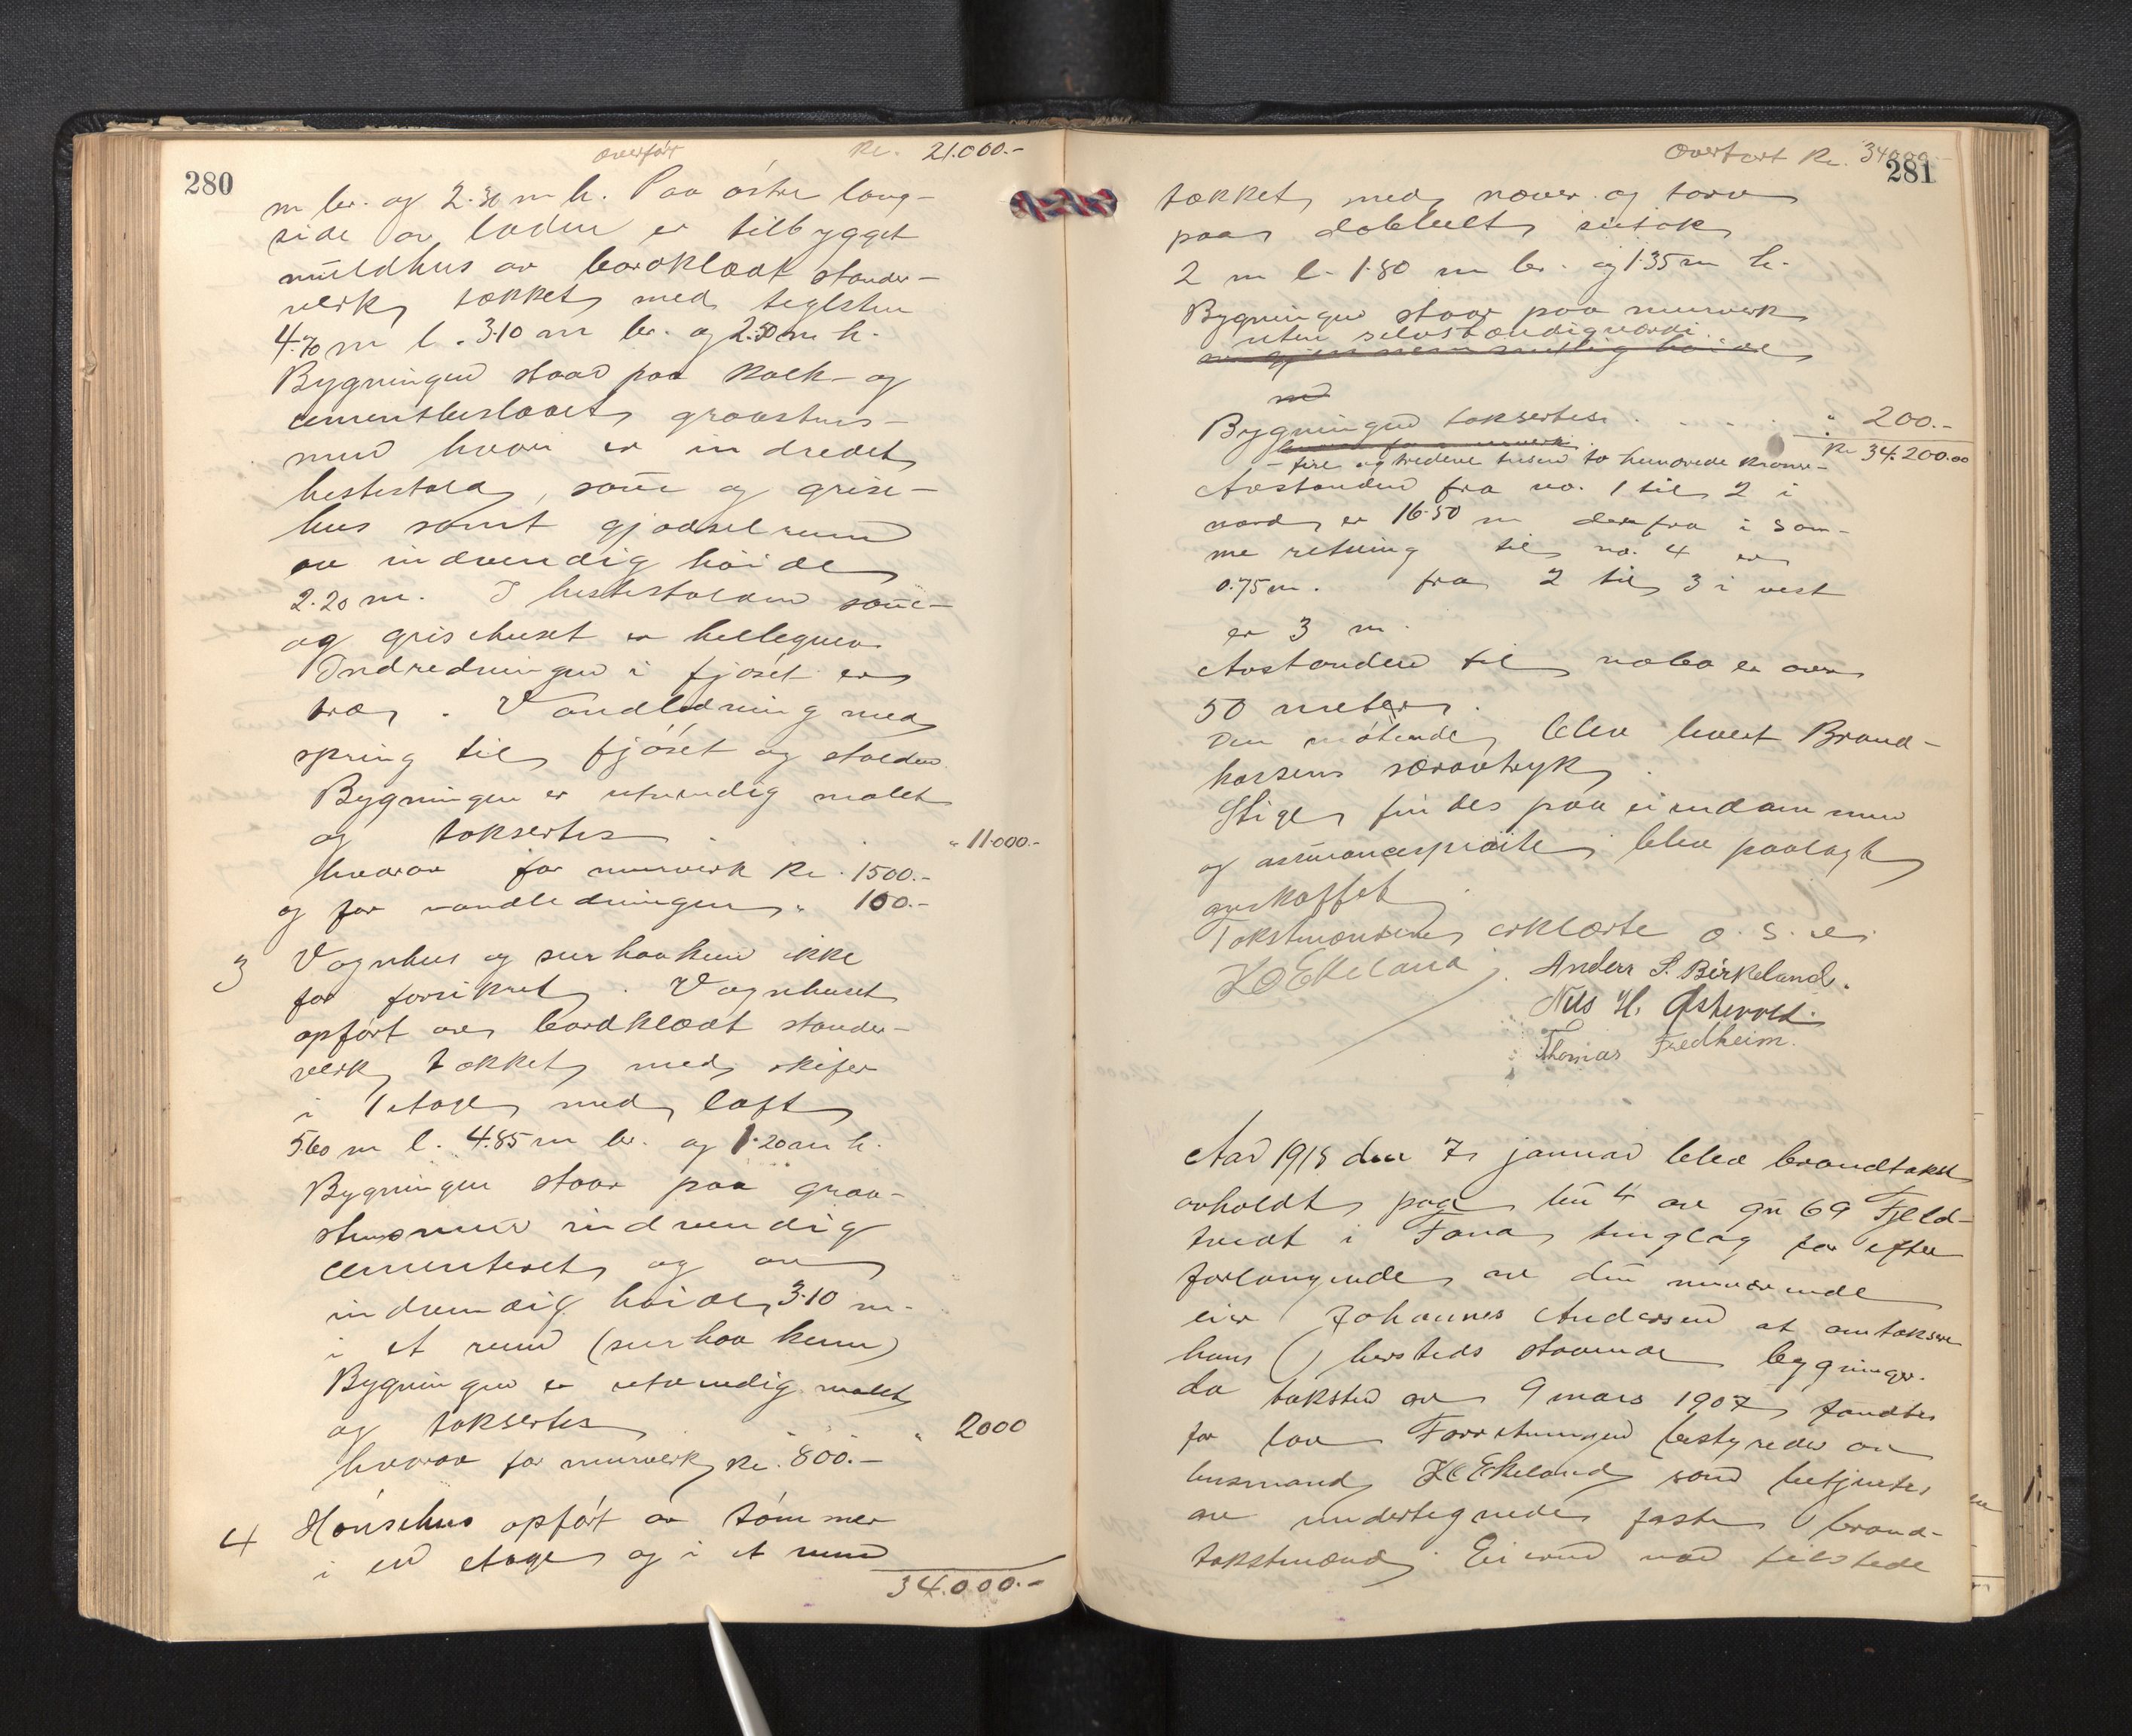 280
overført Kr. 21.000.-
m br. og 2.30 m h. Paa østre lang-
side av laden er tilbygget
muldhus av bordklædt stander-
verk, tækket med teglsten
4.70 m l. 3.10 m br. og 2.50 m h.
Bygningen staar paa kalk- og
cementbeslaaet graastens-
mur hvori er indredet
hestestald, saue og grise-
hus samt gjødselrum
av indvendig høide
2.20 m. I hestestalden saue-
og grisehuset er hellegulv.
Indredningen i fjøset er
træ. Vandledning med
spring til fjøset og stalden.
Bygningen er utvendig malet
og takseres . . " 11.000.-
hvorav for murverk Kr. 1500.-
og for vandledningen " 100.-
3 Vognhus og surhaakum ikke
før forsikret. Vognhuset
opført av bordklædt stander-
verk tækket med skifer
i 1 etage med loft
5.60 m l. 4.85 m br. og 1.20 m h.
Bygningen staar paa graa-
stensmur indvendig
cementeret og av
indvendig høide 3.10 m.
i et rum (surhaakum)
Bygningen er utvendig malet
og takseres " 2000
hvorav for murverk Kr. 800.-
4 Hønsehus opført av tømmer
i en etage og i et rum
34.000.-
281
Overført Kr. 34000.-
tækket med næver og torv
paa dobbelt sutak
2 m l. 1.80 m br. og 1.35 m h.
Bygningen staar paa murverk
uten selvstændig værdi.
Bygningen takseres . . . . " 200.-
Kr 34.200.00
- fire og tredeve tusen to hundrede kroner -
Avstanden fra no. 1 til 2 i
nord er 16.50 m derfra i sam-
me retning til no. 4 er
0.75 m. fra 2 til 3 i vest
er 3 m.
Avstanden til nabo er over
50 meter.
Den møtende blev levert Brand-
kassens særavtryk.
Stige findes paa eiendommen
og assurancesprøite blev paalagt
anskaffet.
Takstmændene erklærte o. s. v.
K O Ekeland. Anders S. Birkeland.
Nils H. Østervold.
Thomas Fredheim.
Aar 1918 den 7 januar blev brandtakst
avholdt paa bn 4 av gn 69 Fjeld-
tvedt i Fana tinglag for efter
forlangende av den nuværende
eier Johannes Andersen at omtaksere
hans hersteds staaende bygninger.
da taksten av 9 mars 1907 fandtes
for lav Forretningen bestyredes av
lensmand K O Ekeland som betjentes
av undertegnede faste brand-
takstmænd. Eieren var tilstede